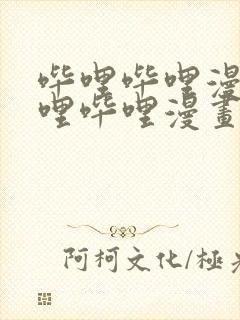 哔哩哔哩漫
哩哔哩漫畫
阿柯文化/極